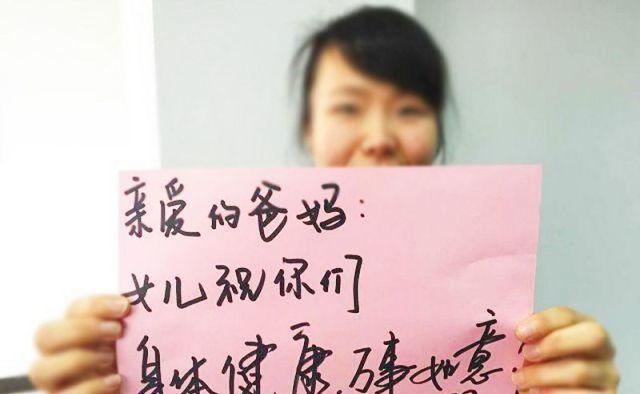 亲爱的爸妈：
女儿祝你们
身体健康，万事如意！